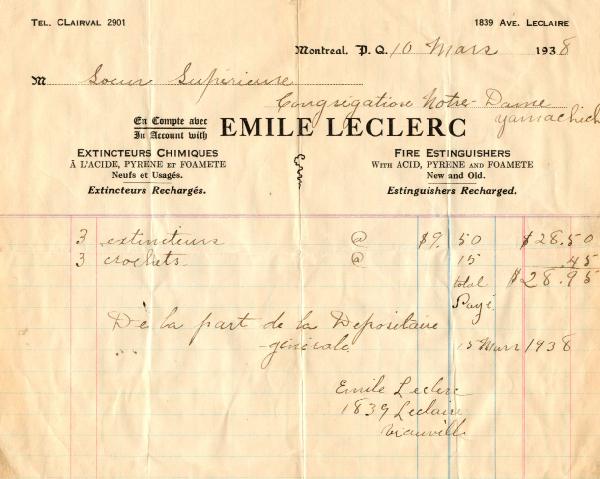 TEL. CLAIRVAL 2901
1839 AVE. LECLAIRE
Montreal, P. Q. 10 Mars 1938
M Soeur Supérieure
Congrégation Notre-Dame
Yamachiche
En Compte avec
In Account with
EMILE LECLERC
EXTINCTEURS CHIMIQUES
À L'ACIDE, PYRENE ET FOAMETE
Neufs et Usagés.
Extincteurs Rechargés.
FIRE ESTINGUISHERS
WITH ACID, PYRENE AND FOAMETE
New and Old.
Estinguishers Recharged.
3 extincteurs @ $9.50 $28.50
3 crochets @ 15 .45
total $28.95
Payé
De la part de la Depositaire
générale 15 Mars 1938
Emile Leclerc
1839 Leclaire
Viauville